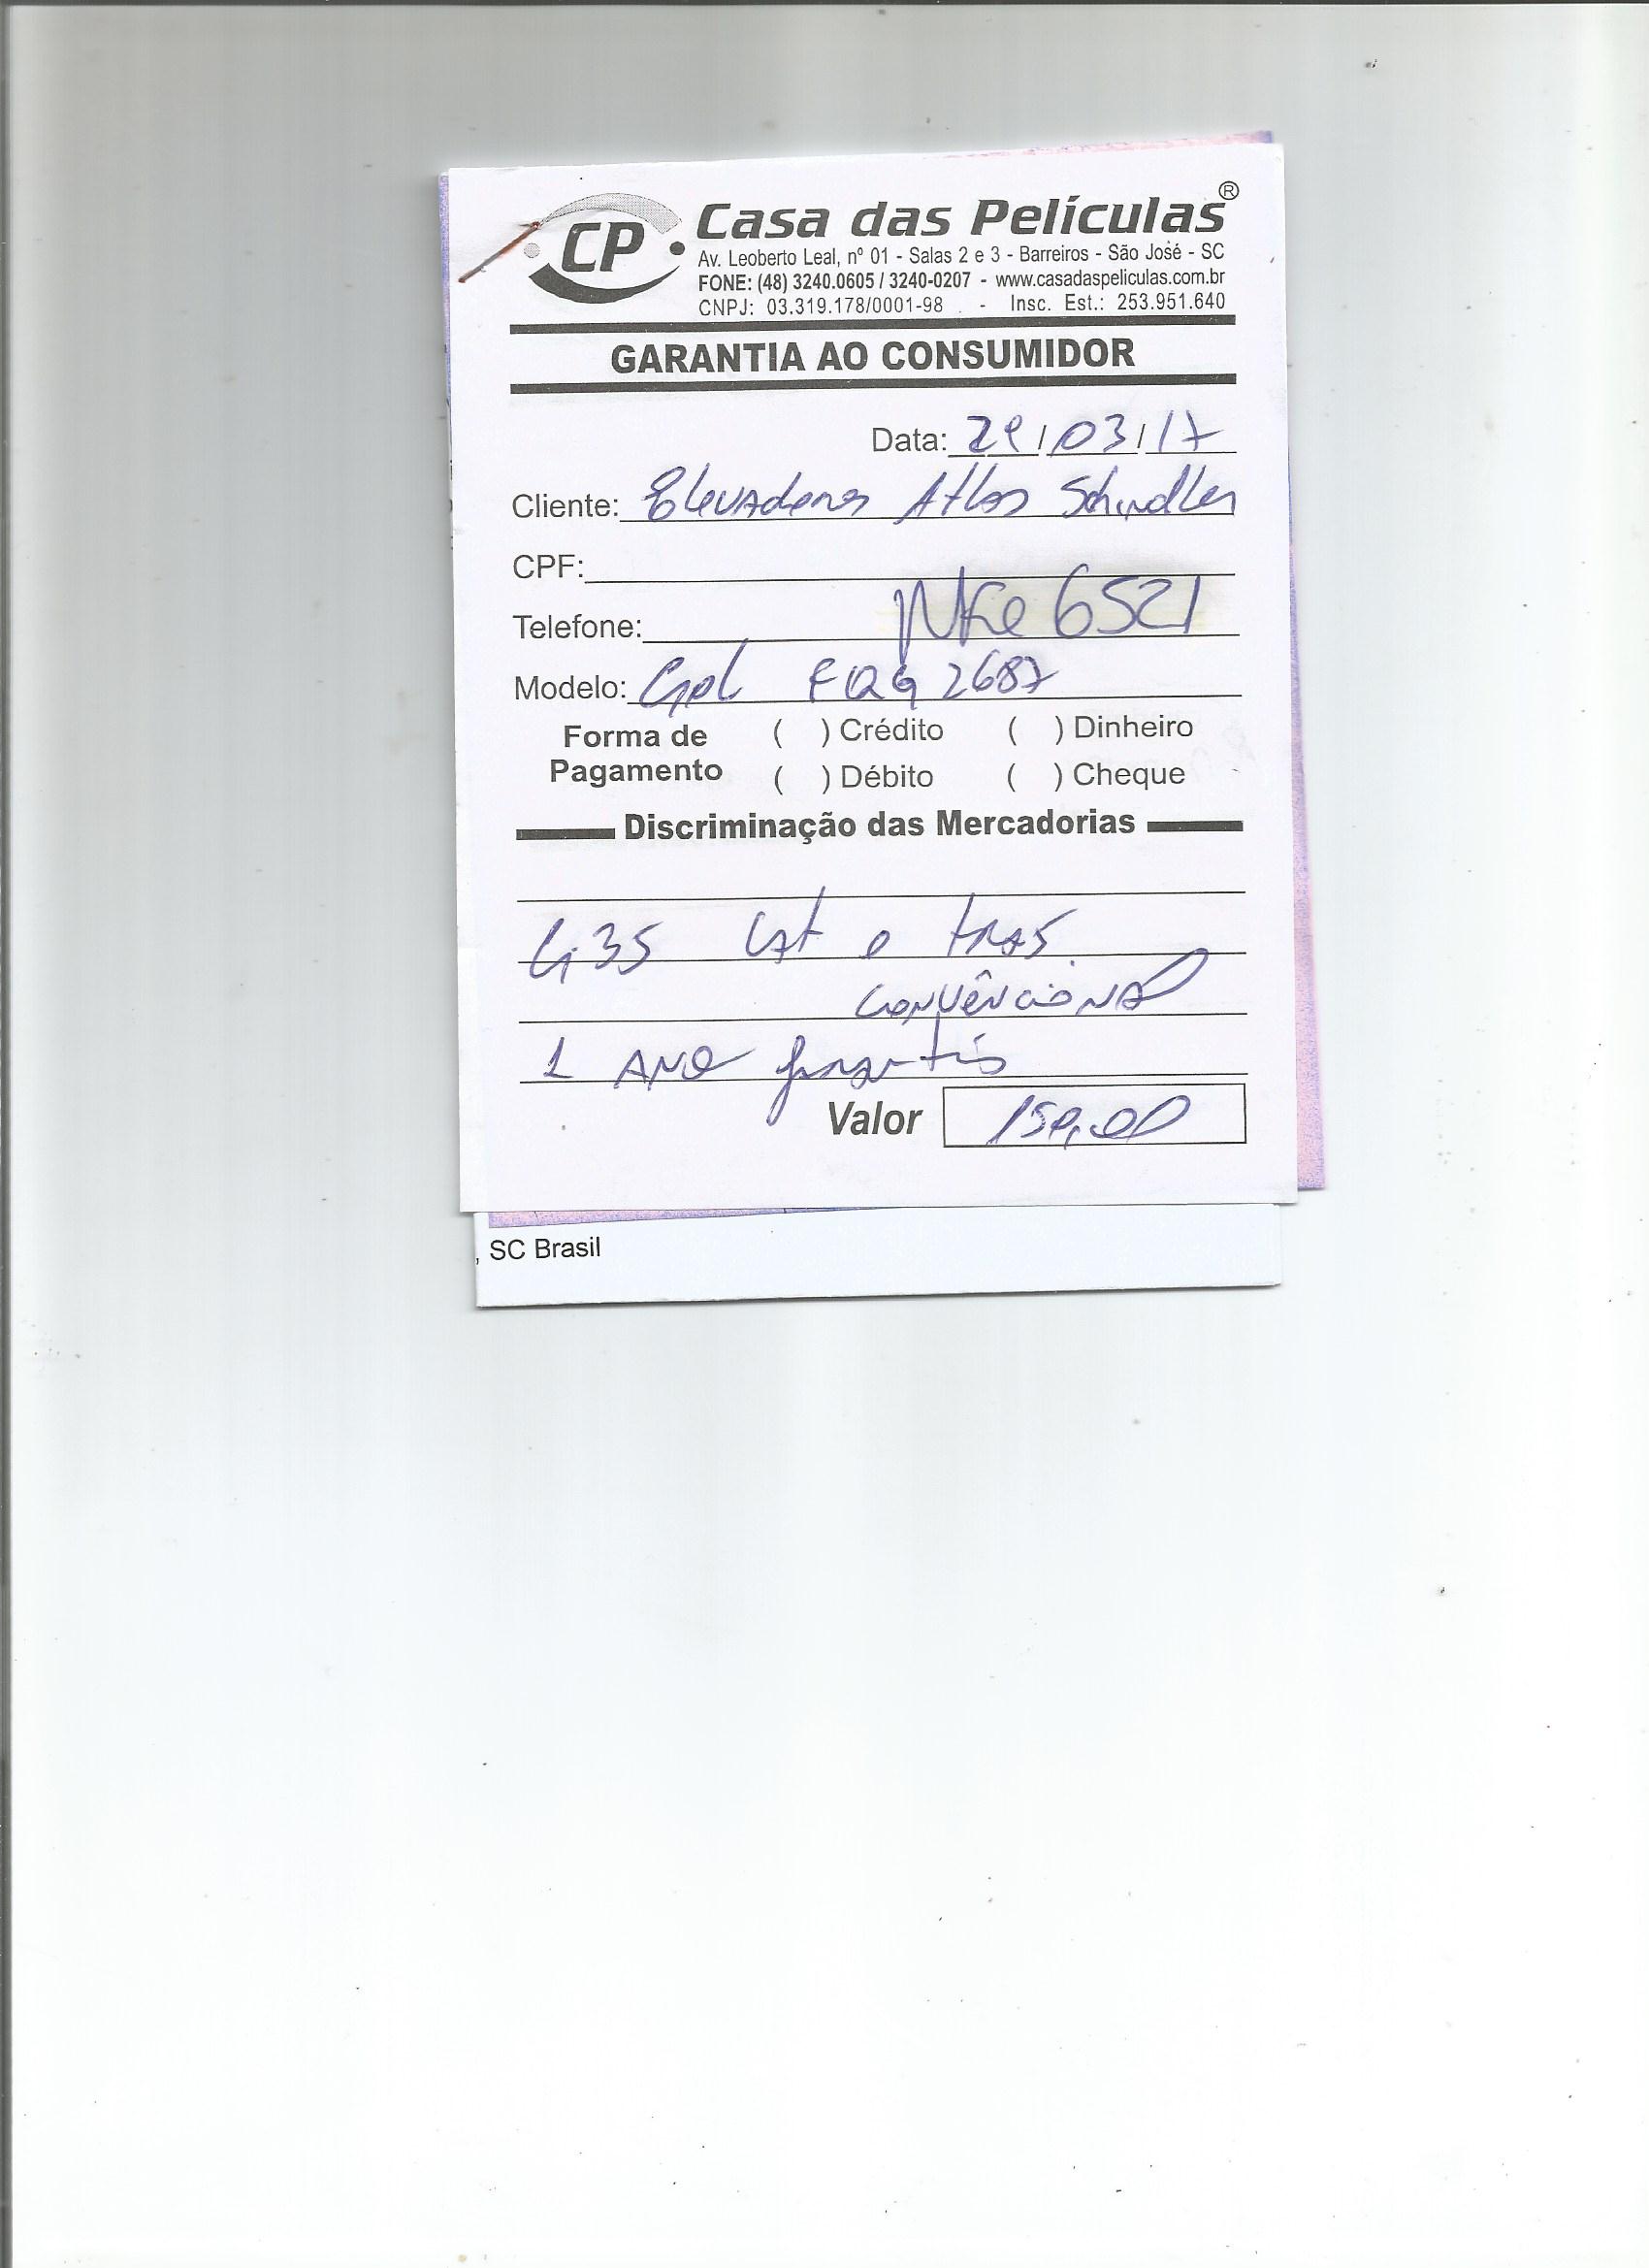 CP Casa das Películas®
Av. Leoberto Leal, nº 01 - Salas 2 e 3 - Barreiros - São José - SC
FONE: (48) 3240.0605 / 3240-0207 - www.casadaspeliculas.com.br
CNPJ: 03.319.178/0001-98 - Insc. Est.: 253.951.640
GARANTIA AO CONSUMIDOR
Data: 29/03/17
Cliente: Elevadores Atlas Schindler
CPF:
Telefone: Nfe 6521
Modelo: Gol FQG 2687
Forma de Pagamento ( ) Crédito ( ) Dinheiro
( ) Débito ( ) Cheque
Discriminação das Mercadorias
G35 Lat e tras.
convêncional
1 ano garantia
Valor 150,00
, SC Brasil